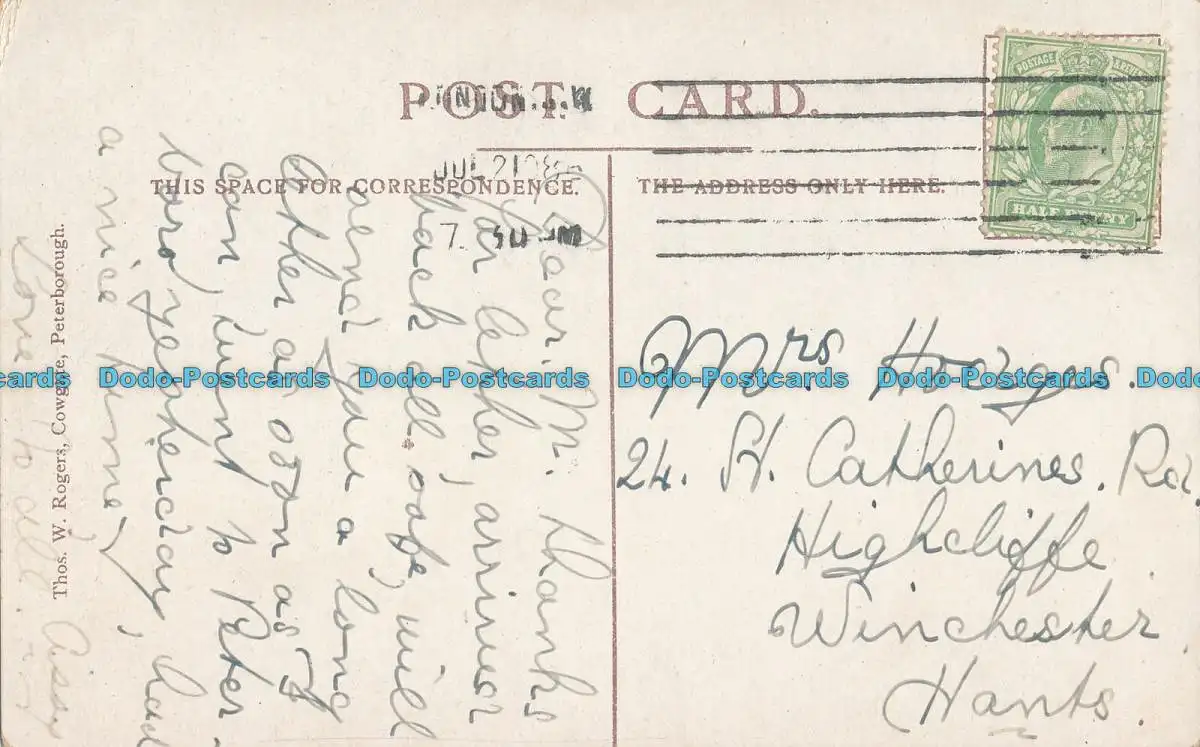 POST CARD.
THIS SPACE FOR CORRESPONDENCE.
THE ADDRESS ONLY HERE.
POSTAGE
HALFPENNY
JUL 21 08
7. 30 PM
Dear M. thanks
for letter, arrived
back all safe, will
send you a long
letter as soon as I
can, went to Peter-
boro yesterday, had
a nice time,
Love to all.
Mrs. Hodges.
24. St. Catherines. Rd.
Highcliffe
Winchester
Hants.
Thos. W. Rogers, Cowgate, Peterborough.
cards Dodo-Postcards Dodo-Postcards Dodo-Postcards Dodo-Postcards Dodo